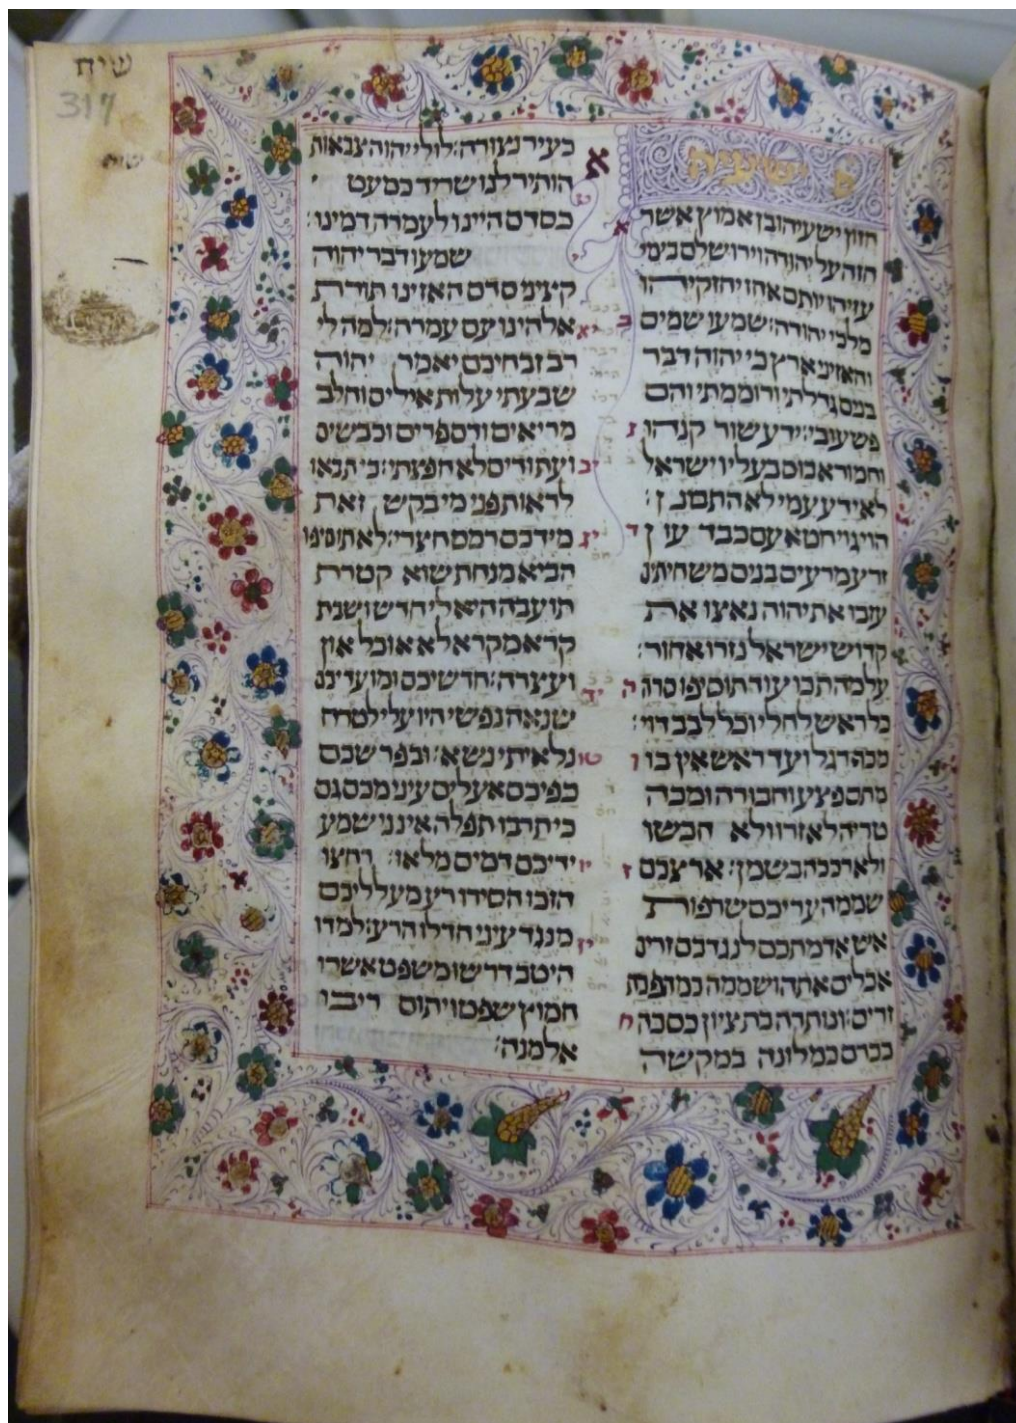 שיח
317
שיח
ישעיה
חזון ישעיהו בן אמוץ אשר
חזה על יהודה וירושלם בימי
עזיהו יותם אחז יחזקיהו
מלכי יהודה: שמעו שמים
והאזיני ארץ כי יהוה דבר
בנים גדלתי ורוממתי והם
פשעו בי: ידע שור קנהו
וחמור אבוס בעליו ישראל
לא ידע עמי לא התבונן:
הוי גוי חטא עם כבד עון
זרע מרעים בנים משחיתים
עזבו את יהוה נאצו את
קדוש ישראל נזרו אחור:
על מה תכו עוד תוסיפו סרה
כל ראש לחלי וכל לבב דוי:
מכף רגל ועד ראש אין בו
מתם פצע וחבורה ומכה
טריה לא זרו ולא חבשו
ולא רככה בשמן: ארצכם
שממה עריכם שרפות
אש אדמתכם לנגדכם זרים
אכלים אתה ושממה כמהפכת
זרים: ונותרה בת ציון כסכה
בכרם כמלונה במקשה
א
א
ב
ג
ד
ה
ו
ז
ח
כעיר נצורה: לולי יהוה צבאות
הותיר לנו שריד כמעט
כסדם היינו לעמרה דמינו:
שמעו דבר יהוה
קציני סדם האזינו תורת
אלהינו עם עמרה: למה לי
רב זבחיכם יאמר יהוה
שבעתי עלות אילים וחלב
מריאים ודם פרים וכבשים
ועתודים לא חפצתי: כי תבאו
לראות פני מי בקש זאת
מידכם רמס חצרי: לא תוסיפו
הביא מנחת שוא קטרת
תועבה היא לי חדש ושבת
קרא מקרא לא אוכל און
ועצרה: חדשיכם ומועדיכם
שנאה נפשי היו עלי לטרח
נלאיתי נשא: ובפרשכם
כפיכם אעלים עיני מכם גם
כי תרבו תפלה אינני שמע
ידיכם דמים מלאו: רחצו
הזכו הסירו רע מעלליכם
מנגד עיני חדלו הרע: למדו
היטב דרשו משפט אשרו
חמוץ שפטו יתום ריבו
אלמנה:
ט
י
יא
יב
יג
יד
טו
יו
יז